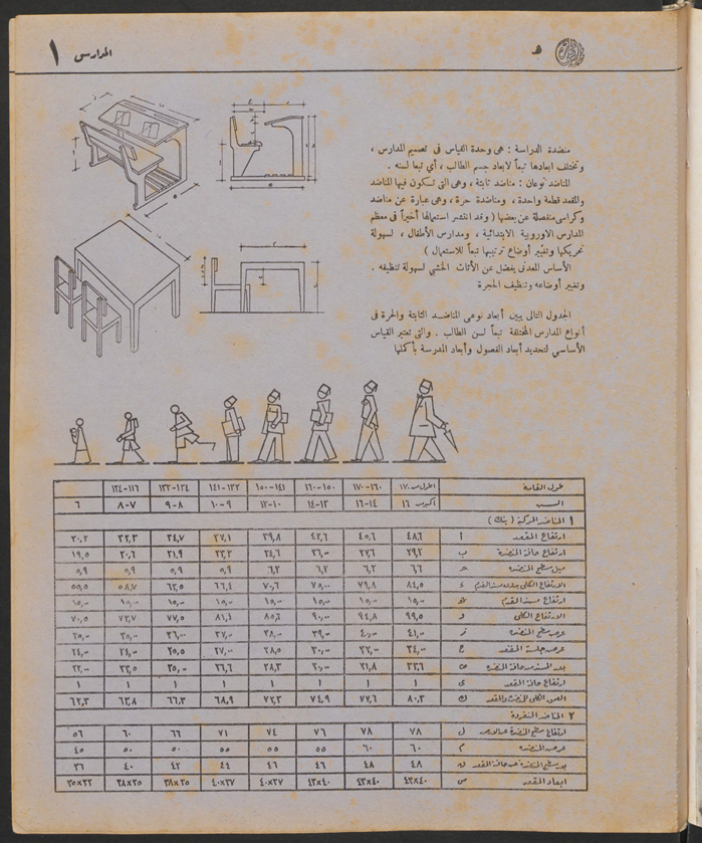 المدارس ١
ه
منضدة الدراسة : هى وحدة القياس فى تصميم المدارس ،
وتختلف ابعادها تبعاً لابعاد جسم الطالب ، أي تبعا لسنه .
المناضد نوعان : مناضد ثابتة ، وهى التى تكون فيها المناضد
والمقعد قطعة واحدة ، ومناضدة حرة ، وهى عبارة عن مناضد
وكراسى منفصلة عن بعضها ( وقد انتشر استعمالها أخيراً فى معظم
المدارس الاوروبية الابتدائية ، ومدارس الأطفال ، لسهولة
تحريكها وتغيير أوضاع ترتيبها تبعاً للاستعمال )
الأساس المعدنى يفضل عن الأثاث الخشبى لسهولة تنظيفه .
وتغيير أوضاعه وتنظيف الحجرة
الجدول التالى يبين أبعاد نوعى المناضد الثابتة والحرة فى
أنواع المدارس المختلفة تبعاً لسن الطالب . والتى تعتبر القياس
الأساسى لتحديد أبعاد الفصول وأبعاد المدرسة بأكملها
طول القامة اطول من ١٧٠ ١٦٠-١٧٠ ١٥٠-١٦٠ ١٤١-١٥٠ ١٣٢-١٤١ ١٢٤-١٣٢ ١١٦-١٢٤
السن أكبر من ١٦ ١٤-١٦ ١٢-١٤ ١٠-١٢ ٩-١٠ ٨-٩ ٧-٨ ٦
١ المناضد المركبة ( بنك )
ارتفاع المقعد ا ٤٨,٦ ٤٥,٦ ٤٢,٦ ٣٩,٨ ٣٧,١ ٣٤,٧ ٣٢,٣ ٣٠,٢
ارتفاع حافة المنضدة ب ٢٩,٢ ٢٧,٦ ٢٦,- ٢٤,٦ ٢٣,٢ ٢١,٩ ٢٠,٦ ١٩,٥
ميل سطح المنضدة ح ٦,٦ ٦,٢ ٦,٢ ٦,٢ ٥,٩ ٥,٩ ٥,٩ ٥,٩
الارتفاع الكلى ٨٤,٥ ٧٩,٨ ٧٥,- ٧٠,٦ ٦٦,٤ ٦٢,٥ ٥٨,٧ ٥٥,٥
ارتفاع مسند القدم ١٥,- ١٥,- ١٥,- ١٥,- ١٥,- ١٥,- ١٥,- ١٥,-
الارتفاع الكلى و ٩٩,٥ ٩٤,٨ ٩٠,- ٨٥,٦ ٨١,٤ ٧٧,٥ ٧٣,٧ ٧٠,٥
عرض سطح المنضدة ز ٤١,- ٤٠,- ٣٩,- ٣٨,- ٣٧,- ٣٦,- ٣٥,- ٣٥,-
عرض جلسة المقعد ح ٣٤,- ٣٢,- ٣٠,- ٢٨,٥ ٢٧,- ٢٥,٥ ٢٤,- ٢٤,-
بعد المسند من حافة المنضدة ٣٣,٦ ٣١,٨ ٣٠,- ٢٨,٣ ٢٦,٦ ٢٥,- ٢٣,٥ ٢٢,-
ارتفاع حافة المقعد ى ١ ١ ١ ١ ١ ١ ١ ١
العمق الكلى للمنضدة والمقعد ك ٨٠,٣ ٧٧,٦ ٧٤,٩ ٧٢,٣ ٦٨,٩ ٦٦,٣ ٦٣,٨ ٦٢,٣
٢ المناضد المنفردة
ارتفاع سطح المنضدة عن الارض ل ٧٨ ٧٨ ٧٦ ٧٤ ٧١ ٦٦ ٦٠ ٥٦
عرض المنضدة م ٦٠ ٦٠ ٥٥ ٥٥ ٥٥ ٥٠ ٥٠ ٤٥
بعد سطح المنضدة عن حافة المقعد ن ٤٨ ٤٨ ٤٦ ٤٦ ٤٤ ٤٢ ٤٠ ٣٦
ابعاد المقعد ٤٠×٤٢ ٤٠×٤٢ ٤٠×٤٢ ٣٧×٤٠ ٣٧×٤٠ ٣٥×٣٨ ٣٥×٣٨ ٣٢×٣٥